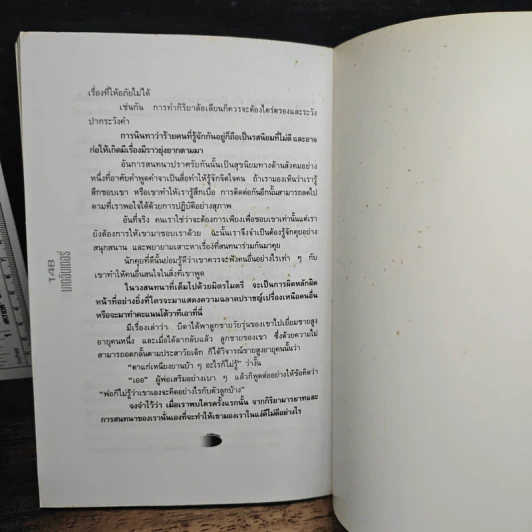 เรื่องที่ให้อภัยไม่ได้
เช่นกัน การทำกิริยาล้อเลียนก็ควรจะต้องไตร่ตรองและระวัง
ปากระวังคำ
การนินทาว่าร้ายคนที่รู้จักกันอยู่ก็ถือเป็นรสนิยมที่ไม่ดี และอาจ
ก่อให้เกิดมีเรื่องมีราวยุ่งยากตามมา
อันการสนทนาปราศรัยกันนั้นเป็นสุขนิยมทางด้านสังคมอย่าง
หนึ่งที่อาศัยคำพูดคำจาเป็นสื่อทำให้รู้จักจิตใจคน ถ้าเรามองเห็นว่าเรารู้
สึกชอบเขา หรือเขาทำให้เรารู้สึกเบื่อ การติดต่อกันอีกนั้นสามารถลดไป
ตามที่เราพอใจได้ด้วยการปฏิบัติอย่างสุภาพ
อันที่จริง คนเราใช่ว่าจะต้องการเพียงเพื่อชอบเขาเท่านั้นแต่เรา
ยังต้องการให้เขามาชอบเราด้วย ฉะนั้นเราจึงจำเป็นต้องรู้จักคุยอย่าง
สนุกสนาน และพยายามเสาะหาเรื่องที่สนทนาร่วมกันมาคุย
นักคุยที่ดีนั้นย่อมรู้ดีว่าเขาควรจะฟังคนอื่นอย่างไรเท่า ๆ กับ
เขาทำให้คนอื่นสนใจในสิ่งที่เขาพูด
ในวงสนทนาที่เต็มไปด้วยมิตรไมตรี จะเป็นการผิดหลักผิด
หน้าที่อย่างยิ่งที่ใครจะมาแสดงความฉลาดปราชญ์เปรื่องเหนือคนอื่น
หรือจะมาทำคะแนนโต้วาทีเอาที่นี่
มีเรื่องเล่าว่า บิดาได้พาลูกชายวัยรุ่นของเขาไปเยี่ยมชายสูง
อายุคนหนึ่ง และเมื่อได้ลากลับแล้ว ลูกชายของเขา ซึ่งด้วยความไม่
สามารถอดกลั้นตามประสาวัยเด็ก ก็ได้วิจารณ์ชายสูงอายุคนนั้นว่า
"ตาแก่เหนียงยานบ้า ๆ อะไรก็ไม่รู้" ว่างั้น
"เออ" ผู้พ่อเสริมอย่างเบา ๆ แล้วก็พูดต่ออย่างให้ข้อคิดว่า
"พ่อก็ไม่รู้ว่าเขาเองจะคิดอย่างไรกับตัวลูกบ้าง"
จงจำไว้ว่า เมื่อเราพบใครครั้งแรกนั้น จากกิริยามารยาทและ
การสนทนาของเรานั่นเองที่จะทำให้เขามองเราในแง่ดีไม่ดีอย่างไร
148